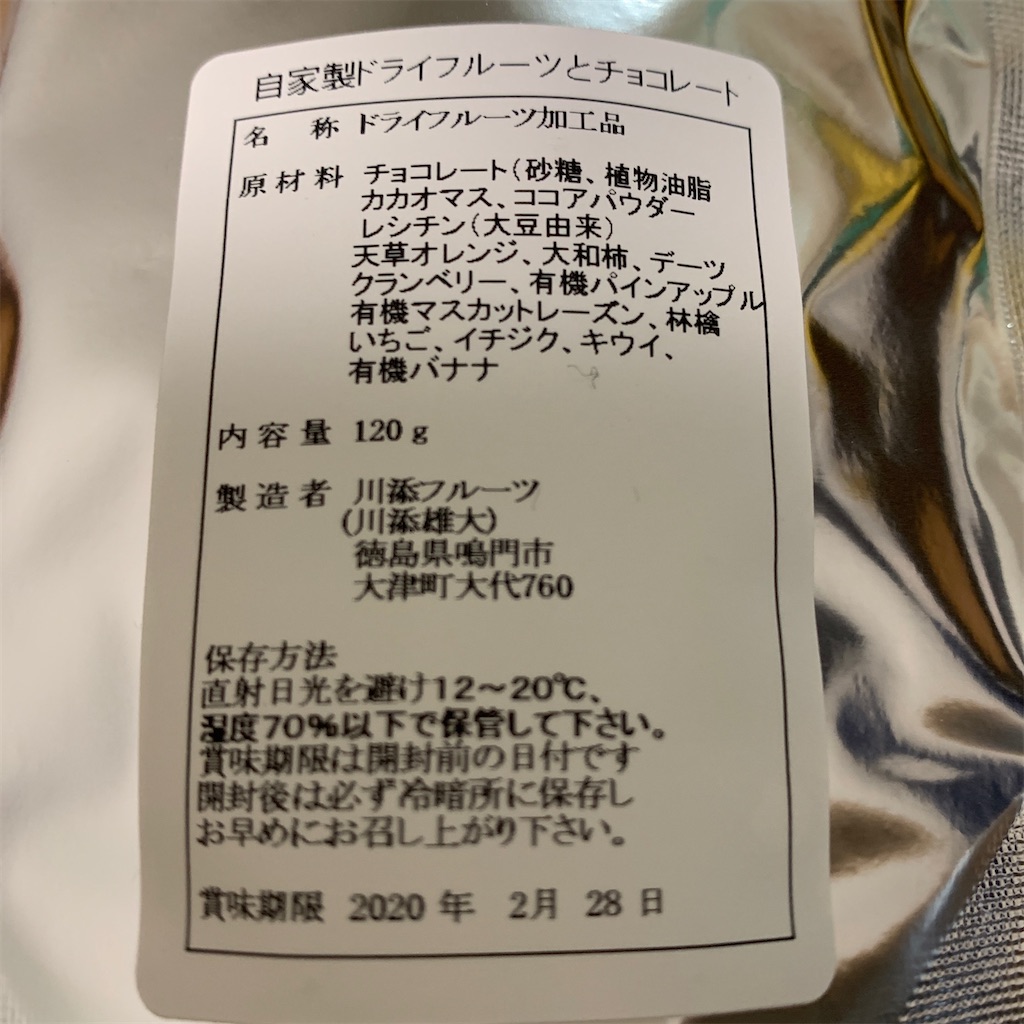 自家製ドライフルーツとチョコレート
名 称 ドライフルーツ加工品
原材料 チョコレート(砂糖、植物油脂
カカオマス、ココアパウダー
レシチン(大豆由来)
天草オレンジ、大和柿、デーツ
クランベリー、有機パインアップル
有機マスカットレーズン、林檎
いちご、イチジク、キウィ、
有機バナナ
内容量 120g
製造者 川添フルーツ
(川添雄大)
徳島県鳴門市
大津町大代760
保存方法
直射日光を避け12~20℃、
湿度70%以下で保管して下さい。
賞味期限は開封前の日付です
開封後は必ず冷暗所に保存し
お早めにお召し上がり下さい。
賞味期限 2020年 2月 28日